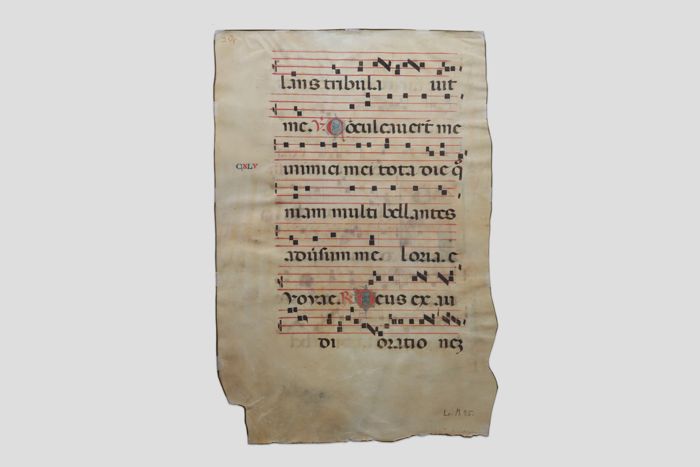 lans tribula uit
me. V. Cōculcauert̄ me
CXLV
inimici mei tota die q̄
niam multi bellantes
adūsum me. loria. e
vovae. R. Deus ex au
di oratio nez